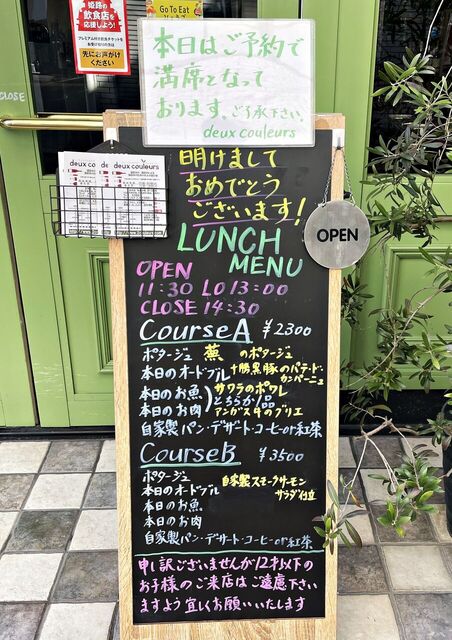 姫路の
飲食店を
応援しよう!
先にお声がけ
ください
Go To Eat
CLOSE
本日はご予約で
満席となって
おります。ご了承下さい。
deux couleurs
deux couleurs
明けまして
おめでとう
ございます!
OPEN
LUNCH
MENU
OPEN
11:30 LO 13:00
CLOSE 14:30
Course A ¥2300
ポタージュ 蕪のポタージュ
本日のオードブル 十勝黒豚のパテ・ド・
カンパーニュ
本日のお魚 サワラのポワレ
どちらか1品
本日のお肉 アンガス牛のグリエ
自家製パン・デザート・コーヒーor紅茶
Course B ¥3500
ポタージュ
本日のオードブル 自家製スモークサーモン
サラダ仕立
本日のお魚
本日のお肉
自家製パン・デザート・コーヒーor紅茶
申し訳ございませんが12才以下の
お子様のご来店はご遠慮下さい
ますよう宜しくお願いいたします